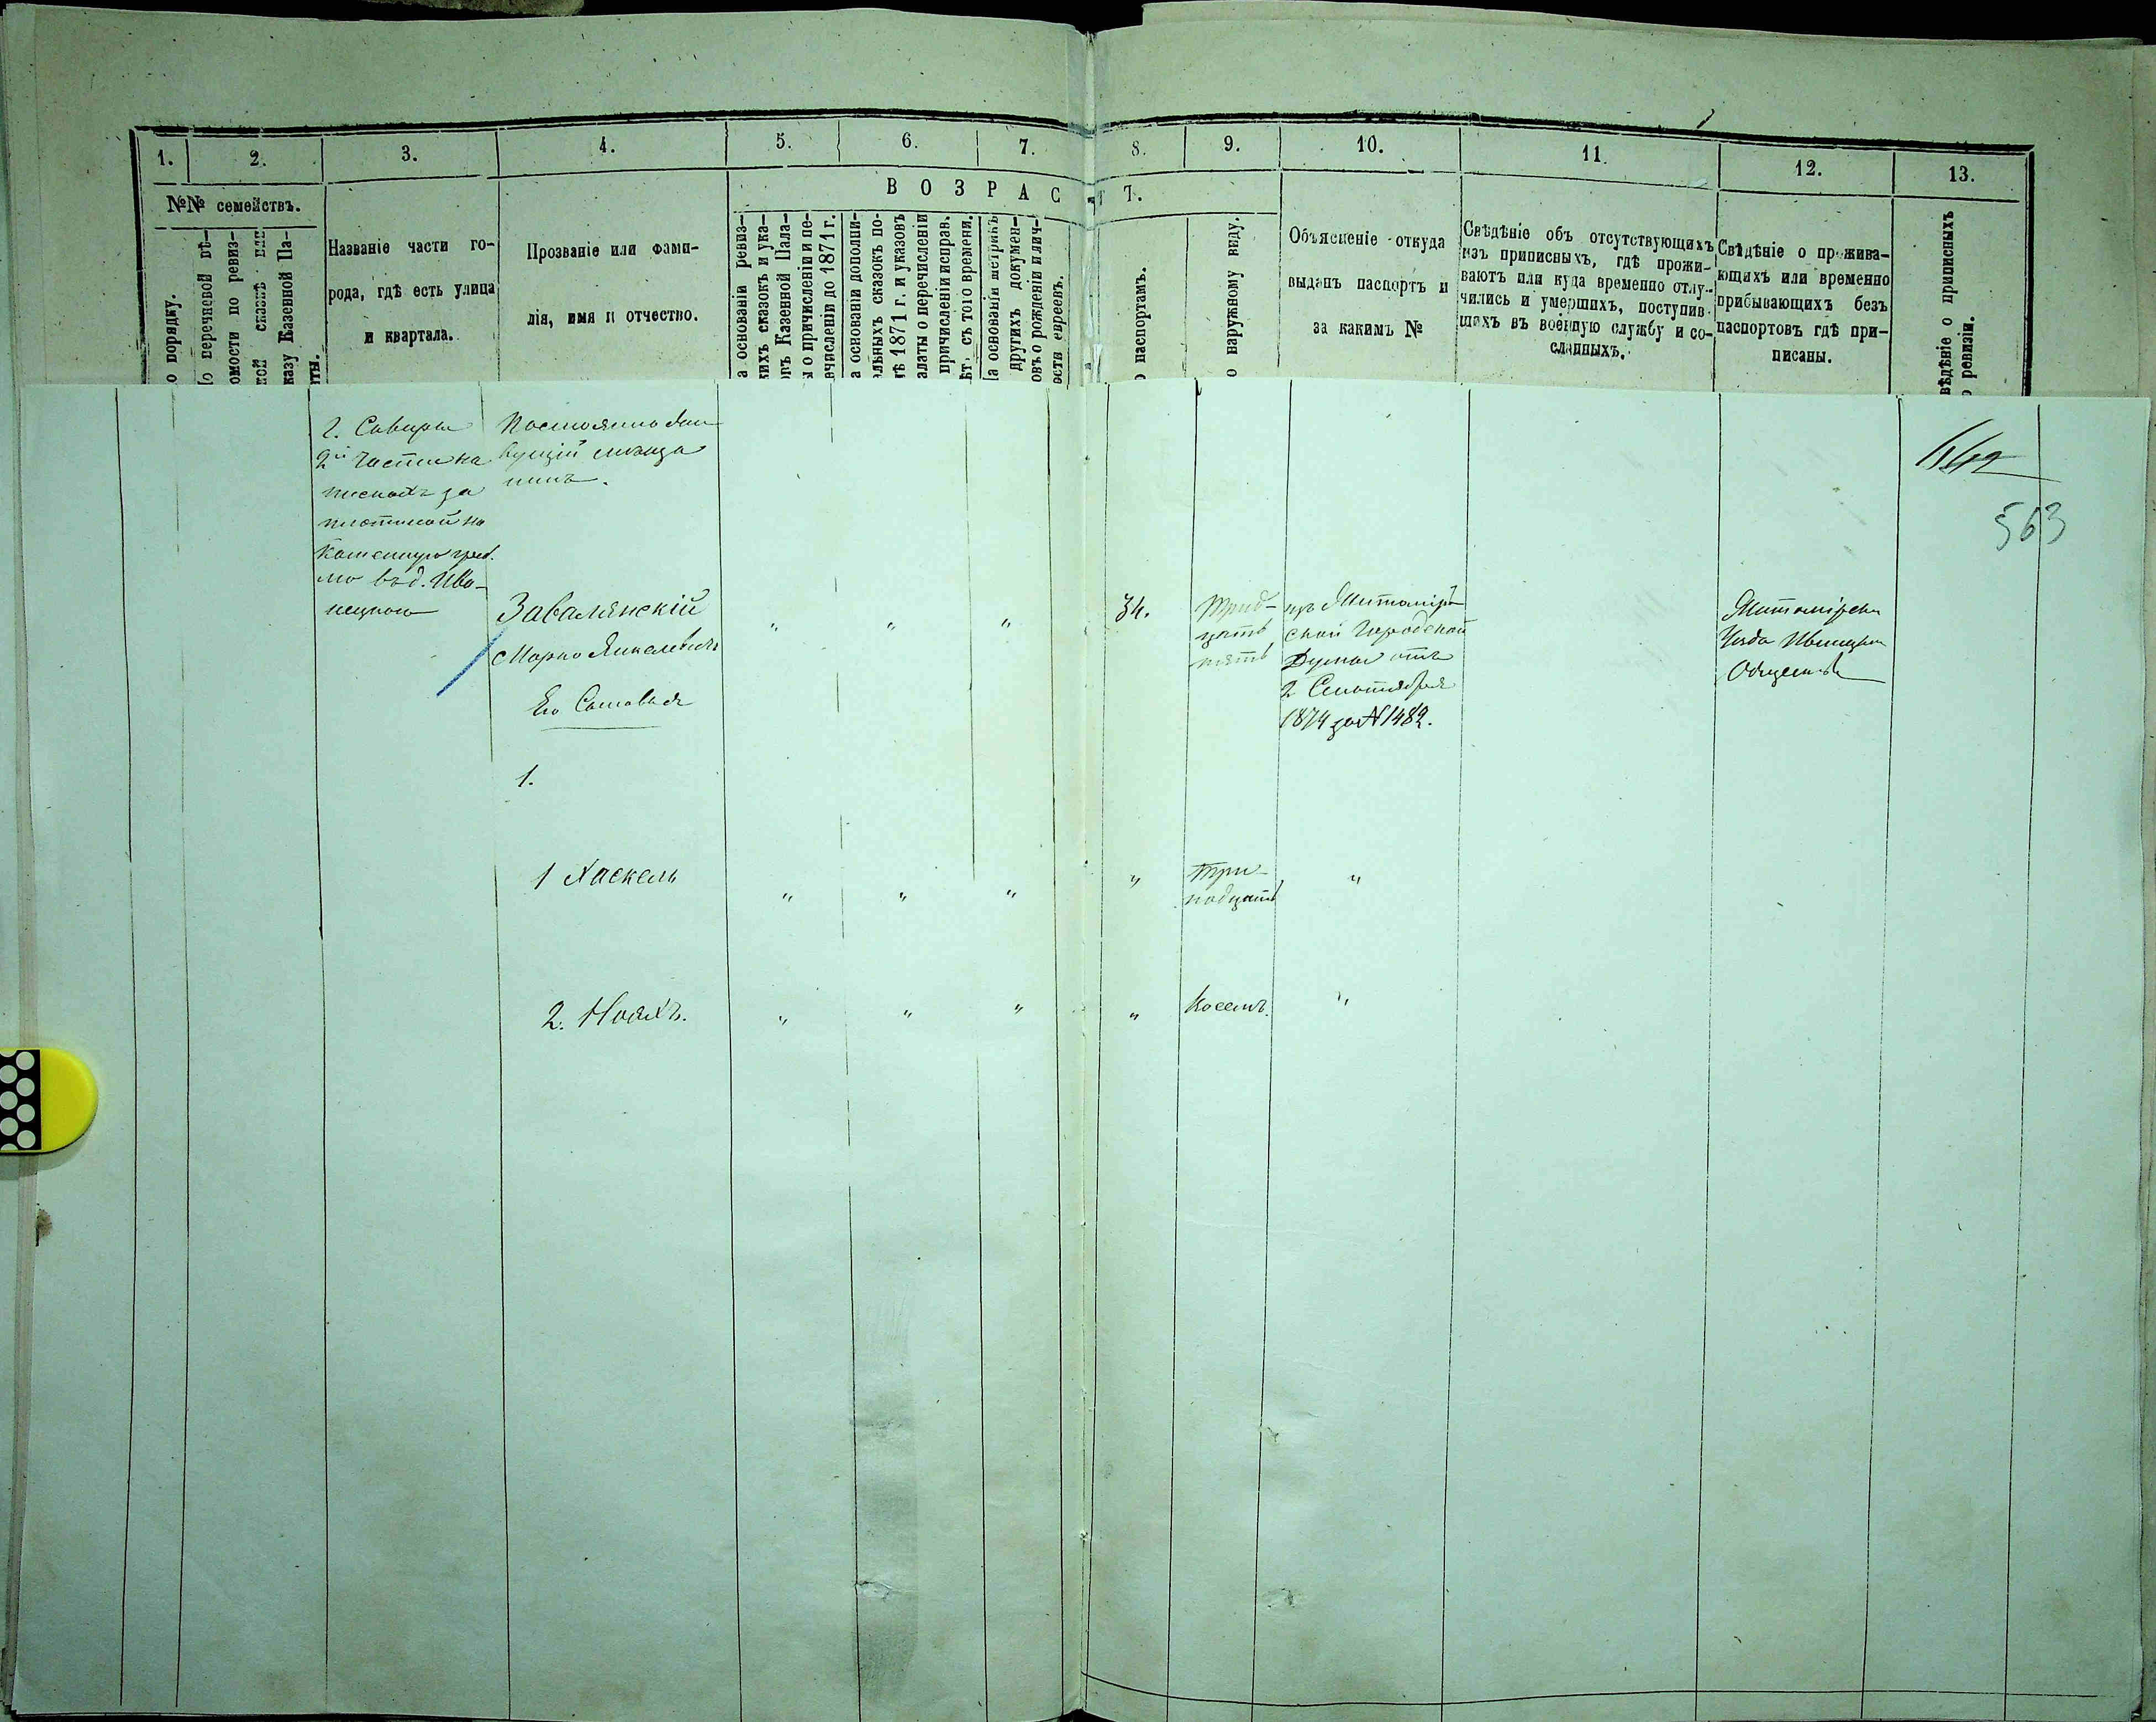 1. 2. 3. 4. 5. 6. 7. 8. 9. 10. 11. 12. 13.
В О З Р А С Т Ъ.
№№ семействъ.
о порядку.
о перечневой вѣ-
омости по ревиз-
ной сказкѣ или
казу Казенной Па-
ты.
Названіе части го-
рода, гдѣ есть улица
и квартала.
Прозваніе или фами-
лія, имя и отчество.
а основаніи ревиз-
кихъ сказокъ и ука-
овъ Казенной Пала-
ы о причисленіи и пе-
ечисленіи до 1871 г.
а основаніи дополни-
ельныхъ сказокъ по-
лѣ 1871 г. и указовъ
алаты о перечисленіи
причисленіи исправ.
ѣт. съ того времени.
На основаніи метрикъ
другихъ докумен-
овъ о рожденіи и лич-
ости евреевъ.
о паспортамъ.
о наружному виду.
Объясненіе откуда
выданъ паспортъ и
за какимъ №
Свѣдѣніе объ отсутствующихъ
изъ приписныхъ, гдѣ прожи-
ваютъ или куда временно отлу-
чились и умершихъ, поступив-
шихъ въ военную службу и со-
сланныхъ.
Свѣдѣніе о прожива-
ющихъ или временно
прибывающихъ безъ
паспортовъ гдѣ при-
писаны.
вѣдѣніе о приписныхъ
о ревизіи.
г. Сквиры
2й части на
пискахъ за
плотиной на
въ д. Ива-
нецкого
Постоянно жи
вущій мѣща
нинъ.
563
Завалянскій
Марко Янкелевичъ
" " "
34.
Трид-
цать
пять
изъ Житомір
ской Городской
Думы отъ
2 Сентября
1874 за № 1482.
Житомірска
Уѣзда Ивницкаго
Общества
Его Сыновья
1.
1 Хаскель " " " " Три-
надцать "
2. Ноахъ. " " " " Восемь. "